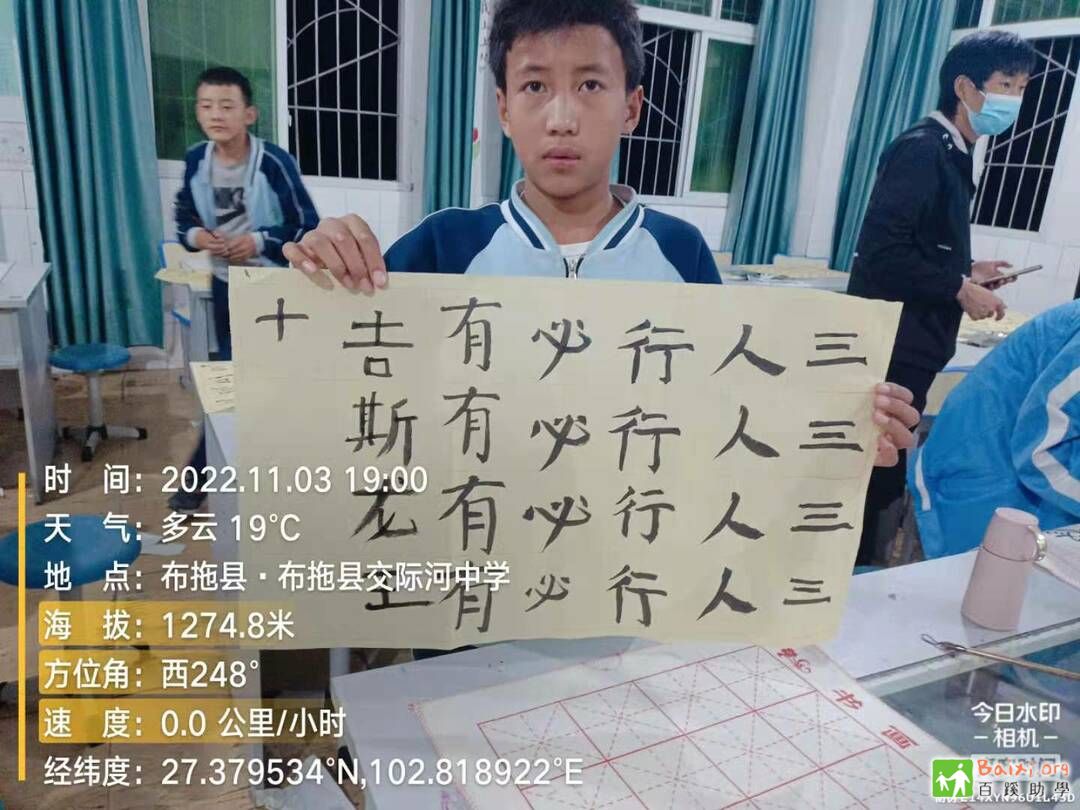 三三三三
人人人人
行行行行
必必必必
有有有有
吉斯
十
时 间：2022.11.03 19:00
天 气：多云 19℃
地 点：布拖县·布拖县交际河中学
海 拔：1274.8米
方位角：西248°
速 度：0.0 公里/小时
经纬度：27.379534°N,102.818922°E
书画
今日水印
-相机-
Baixi.org
百蹊助學